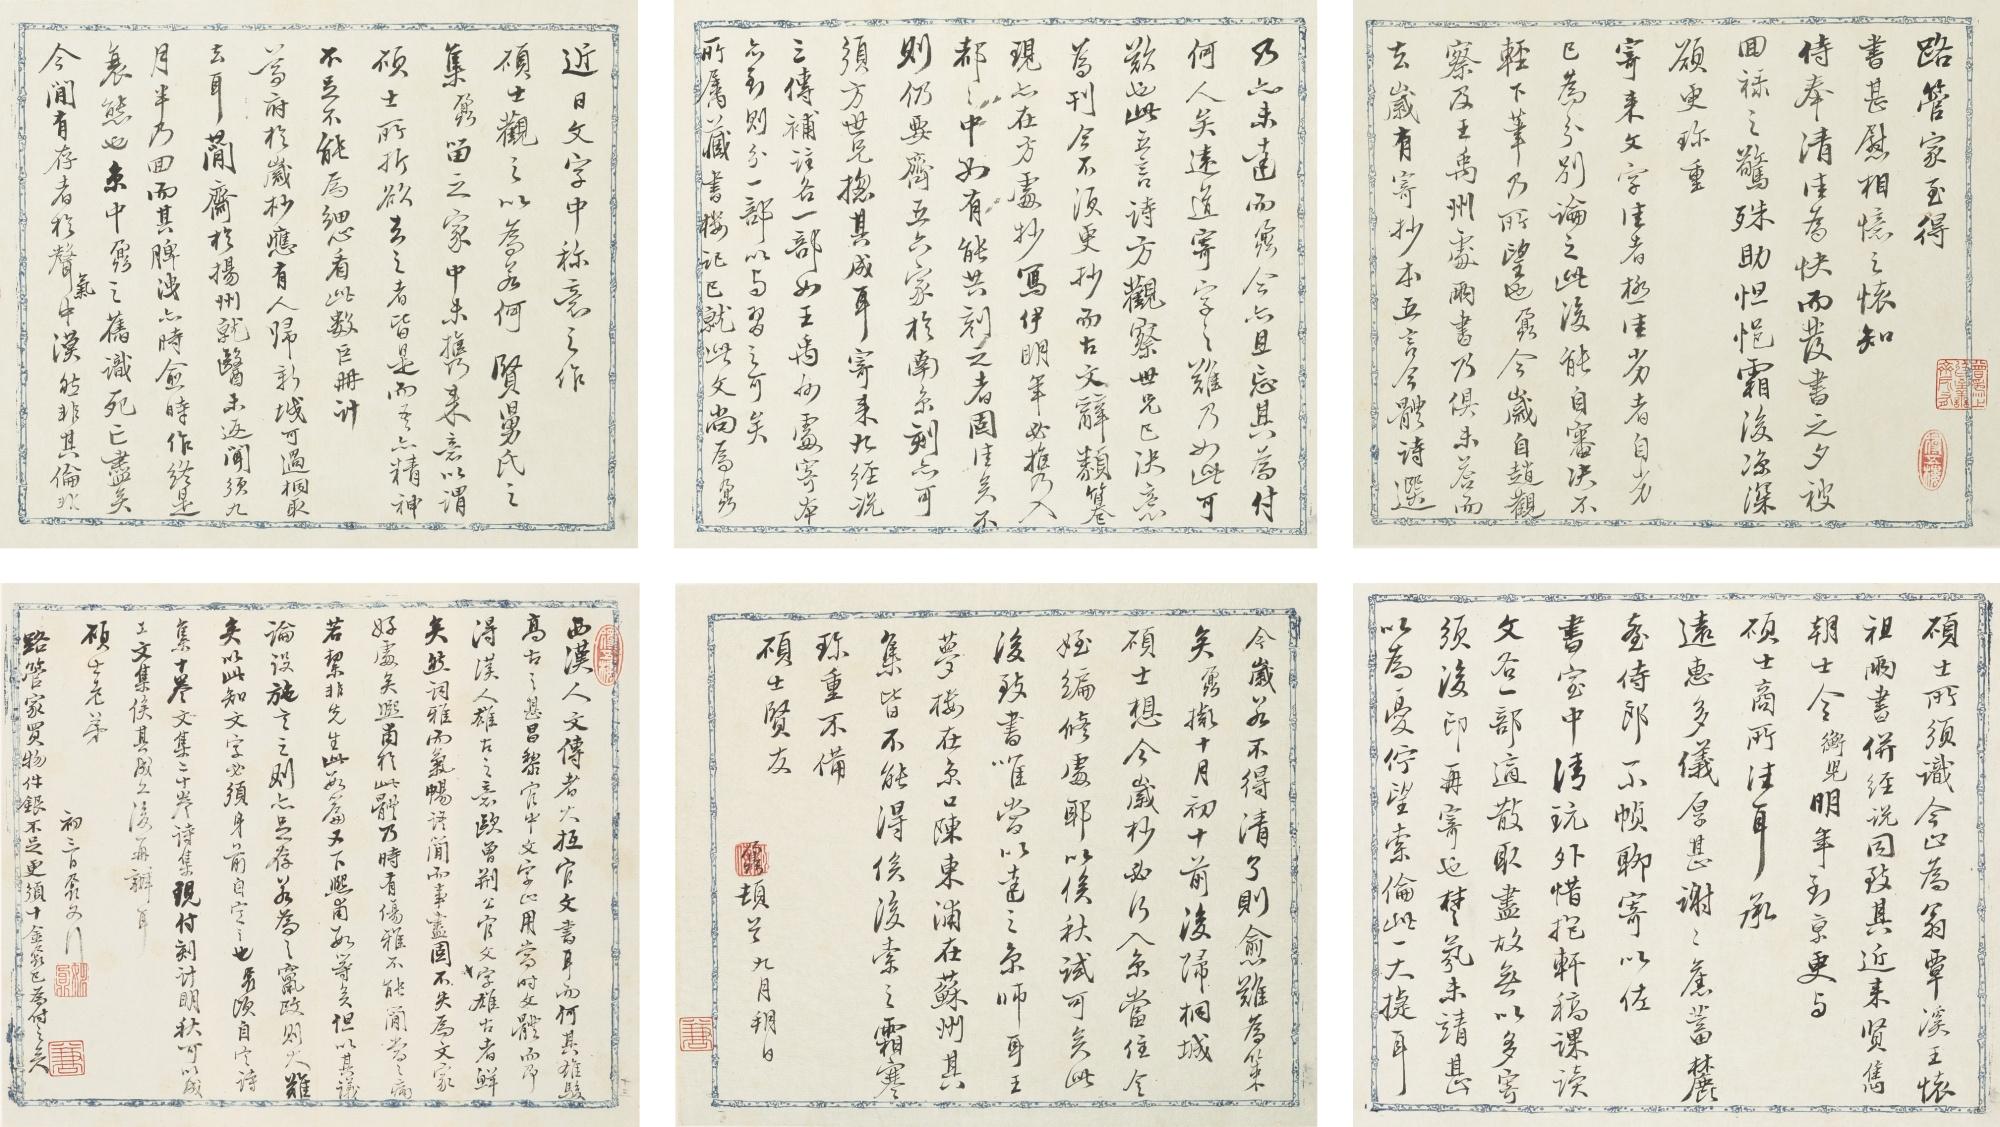 路管家至得
書甚慰相憶之懷知
侍奉清佳為快而發書之夕被
回祿之驚殊助怛悒霜後凉深
願更珍重
寄来文字佳者極佳劣者自劣
已為分別論之此後能自審決不
輕下筆乃所望也鼐今歲自趙觀
察及王禹州處兩書乃俱未荅而
去歲有寄抄本五言今體詩選
乃亦未達而鼐今亦且忘其為付
何人矣遠道寄字之難乃如此可
歎也此五言詩方觀察世兄已決意
為刊今不須更抄而古文辭類篹
現亦在方處抄寫伊明年必攜入
都都中如有能共刻之者固佳矣不
則仍要齊五六家於南京刻亦可
須方世兄揔其成耳寄来九經説
三傳補注各一部如王禹州處寄本
亦到則分一部以与習之可矣
所属藏書樓記已就此文尚為鼐
近日文字中称意之作
碩士觀之以為若何 賢舅氏之
集鼐留之家中未攜来意以謂
碩士所折欲去之者皆是而吾亦精神
不足不能為細看此数巨冊計
尊府於歲杪應有人歸新城可過桐取
去耳蘭齋於揚州就醫未返聞須九
月半乃回而其脾洩亦時愈時作終是
衰態也京中鼐之舊識死亡盡矣
今閒有存者於聲氣中漠然非其倫非
碩士所須識今止為翁覃溪王懷
祖兩書併經説同致其近来贤雋
朝士令衡兒明年到京更与
碩士商所往耳 承
遠惠多儀厚甚謝謝舊蓄麓
臺侍郎小幀聊寄以佐
書室中清玩外惜抱軒稿課讀
文各一部適散取盡故無以多寄
須後印再寄也楚氛未靖甚
以為憂佇望索倫此一大捷耳
今歲若不得清了則愈難為策
矣鼐擬十月初十前後歸桐城
碩士想今歲杪必行入京當住令
姪編修處耶以俟秋試可矣此
後致書唯當以達之京師耳王
夢樓在京口陳東浦在蘇州其
集皆不能得俟後索之霜寒
珍重不備
碩士賢友
姚鼐頓首九月朔日
西漢人文傳者大抵官文書耳而何其雄駿
高古之甚昌黎官中文字止用當时文體而即
得漢人雄古之意歐曾荆公官文字雄古者鮮
矣然詞雅而氣暢语簡而事盡固不失為文家
好處矣熙甫於此體乃時有傷雅不能簡當之病
若絜非先生此数篇又下熙甫数等矣但以其議
論設施言之則亦足存若為之竄改則大難
矣以此知文字必須身前自定之也 須自定詩
集十卷文集二十卷詩集現付刻計明秋可以成
工文集俟其成之後再辦耳
碩士老弟
初三日鼐又行
路管家買物件銀不足更須十金鼐已為付之矣